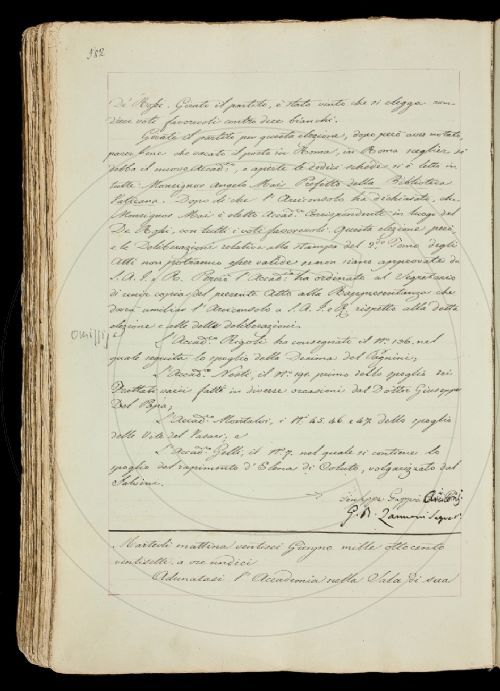 582
De Rossi. Girato il partito, è stato vinto che si elegga con
dieci voti favorevoli contro dieci bianchi.
Girato il partito per questa elezione, dopo però aver notato
parer bene che vacato il posto in Roma, in Roma scegliere si
debba il nuovo Accad.co, e aperte le dodici schede si è letto in
tutte: Monsignor Angelo Mai Prefetto della Biblioteca
Vaticana. Dopo di che l'Arciconsolo ha dichiarato, che
Monsignor Mai è eletto Accad.co Corrispondente in luogo del
De Rossi, con tutti i voti favorevoli. Questa elezione però,
e le Deliberazioni relative alla stampa del 2.do Tomo degli
Atti non potranno esser valide senza siano approvate da
S. A. I. e R. Perciò l'Accad.a ha ordinato al Segretario
di unir copia del presente Atto alla Rappresentanza che
dovrà umiliar l'Arciconsolo a S. A. I. e R. rispetto alla detta
elezione e alle dette deliberazioni.
Omissis
L'Accad.co Rigoli ha consegnato il N.o 136. nel
quale seguita lo spoglio della Divina del Pacino;
L'Accad.co Nesti, il N.o 191. primo dello spoglio dei
Trattati varii fatti in diverse occasioni dal Dottor Giuseppe
Del Papa;
L'Accad.co Montalvi, i N.i 45. 46. e 47. dello spoglio
delle Vite del Vasari; e
L'Accad.co Gelli, il N.o 7. nel quale si contiene lo
spoglio del rapimento d'Elena di Coluto, volgarizzato dal
Salvini.
Giuseppe
G. B. Zannoni Segret.o
Martedì mattina ventisei Giugno mille ottocento
ventisette a ore undici
Adunatasi l'Accademia nella Sala di sua